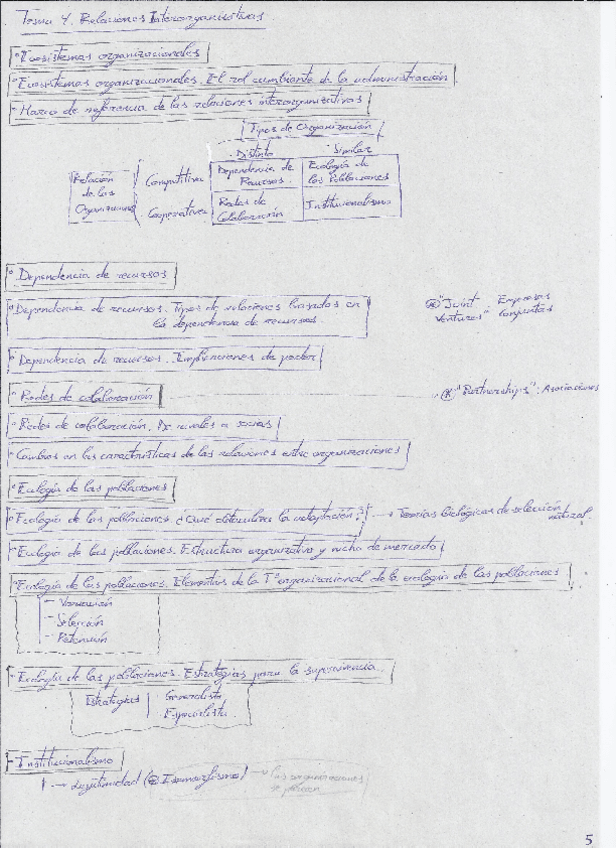 Tema 4. Relaciones Interorganizativas
Ecosistemas organizacionales
Ecosistemas organizacionales. El rol cambiante de la administración
Marco de referencia de las relaciones interorganizativas
Tipos de Organización
Distinto Similar
Relación de las Organizaciones
Competitiva Dependencia de Recursos Ecología de las Poblaciones
Cooperativa Redes de Colaboración Institucionalismo
Dependencia de recursos
Dependencia de recursos. Tipos de relaciones basados en
la dependencia de recursos.
"Joint Ventures" Empresas Conjuntas
Dependencia de recursos. Implicaciones de poder
Redes de colaboración
"Partnerships". Asociaciones
Redes de colaboración. De rivales a socios
Cambios en las características de las relaciones entre organizaciones
Ecología de las poblaciones
Ecología de las poblaciones. ¿Qué obstaculiza la adaptación? → Teorías Biológicas de selección
natural.
Ecología de las poblaciones. Estructura organizativa y nicho de mercado
Ecología de las poblaciones. Elementos de la Tª organizacional de la ecología de las poblaciones
- Variación
- Selección
- Retención
Ecología de las poblaciones. Estrategias para la supervivencia.
Estrategias Generalista
Especialista
Institucionalismo
→ Legitimidad ( Isomorfismo) → las organizaciones
se
5